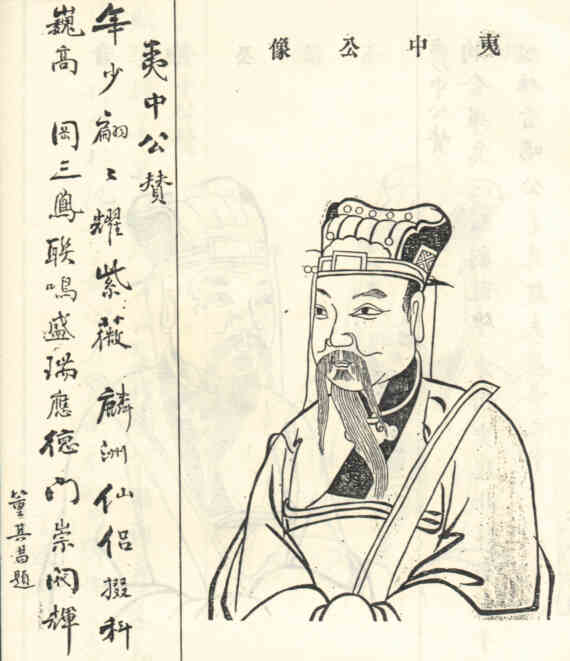 夷中公像
夷中公賛
年少翩〻耀紫薇麟洲仙侣掇科
巍高岡三鳳聯鳴盛瑞應德門崇閥輝
董其昌題